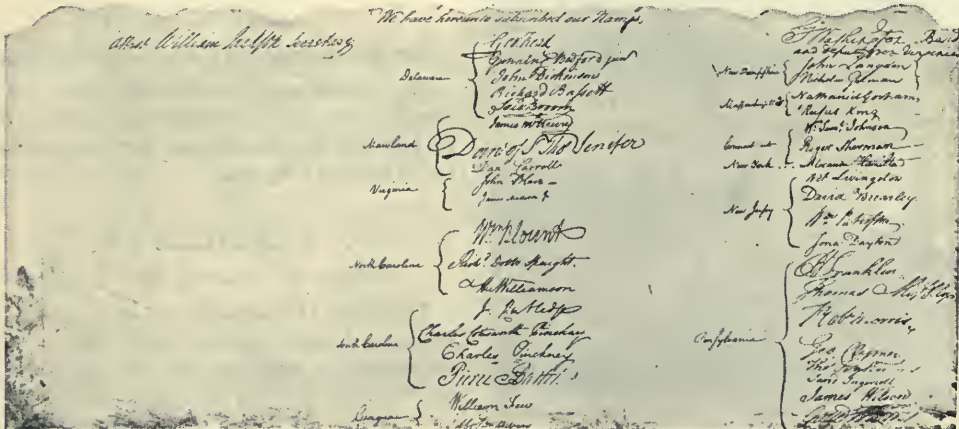 We have hereunto subscribed our Names,
attest William Jackson Secretary
Delaware
Geo: Read
Gunning Bedford jun
John Dickinson
Richard Bassett
Jaco: Broom
Maryland
James McHenry
Dan of St Thos Jenifer
Danl Carroll
Virginia
John Blair—
James Madison Jr
North Carolina
Wm Blount
Richd Dobbs Spaight.
Hu Williamson
South Carolina
J. Rutledge
Charles Cotesworth Pinckney
Charles Pinckney
Pierce Butler.
Georgia
William Few
Abr Baldwin
Go Washington—Presid
and deputy from Virginia
New Hampshire
John Langdon
Nicholas Gilman
Massachusetts
Nathaniel Gorham
Rufus King
Connecticut
Wm Saml Johnson
Roger Sherman
New York ...
Alexander Hamilton
New Jersey
Wil: Livingston
David Brearley.
Wm Paterson.
Jona: Dayton
Pensylvania
B Franklin
Thomas Mifflin
Robt Morris
Geo. Clymer
Thos FitzSimons
Jared Ingersoll
James Wilson.
Gouv Morris